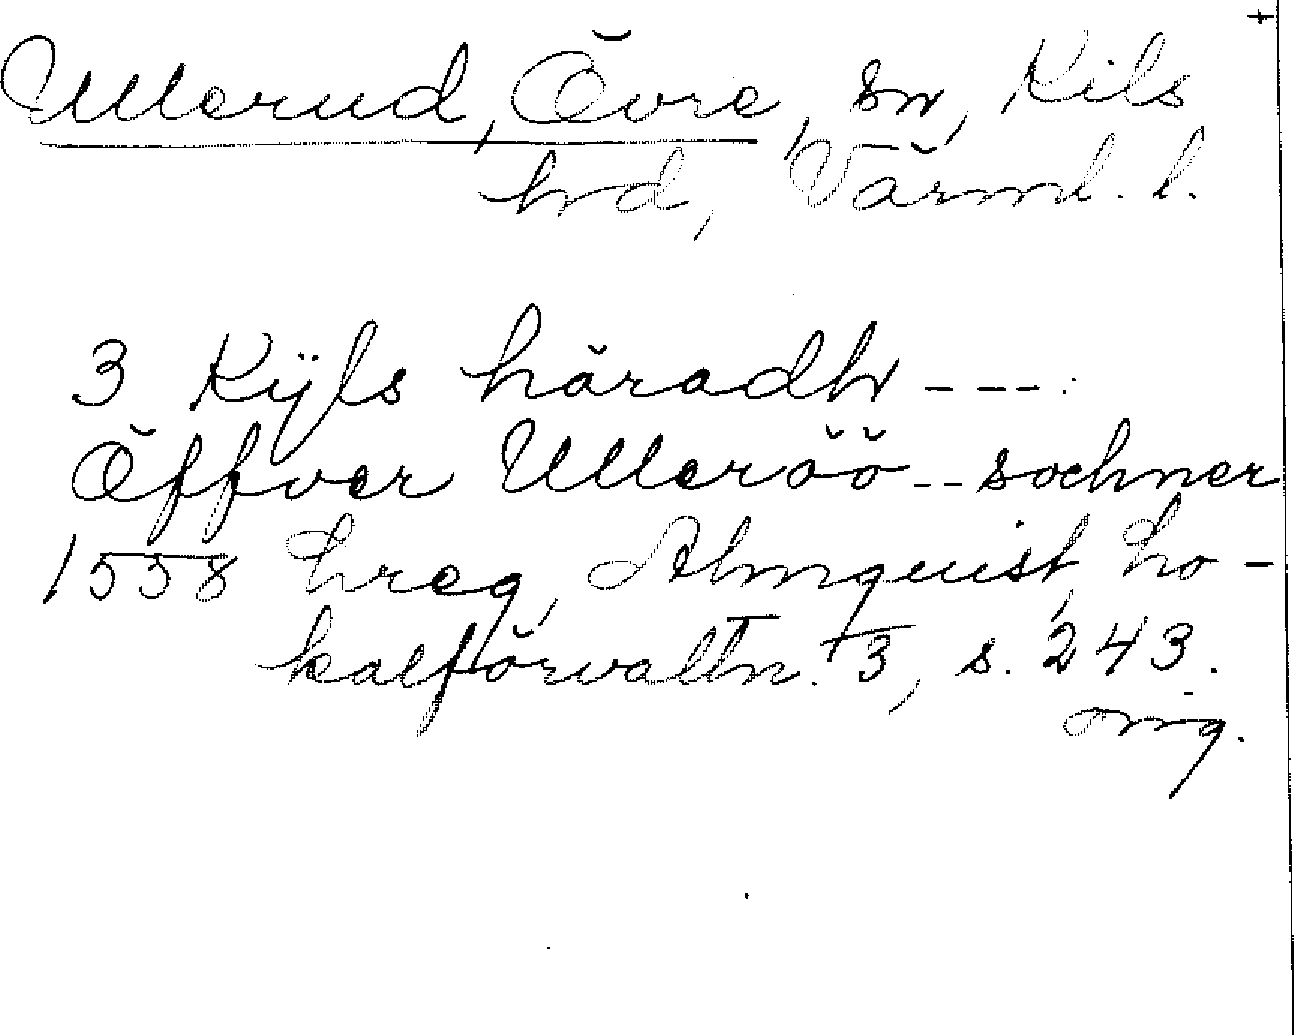 +
Ullerud, Övre, sn, Kils
hrd, Värml. l.
3 Kÿls häradh ----:
Öffver Ulleröö -- sochner
1558 hreg, Almquist, Lo-
kalförvaltn. 3, s. 243.